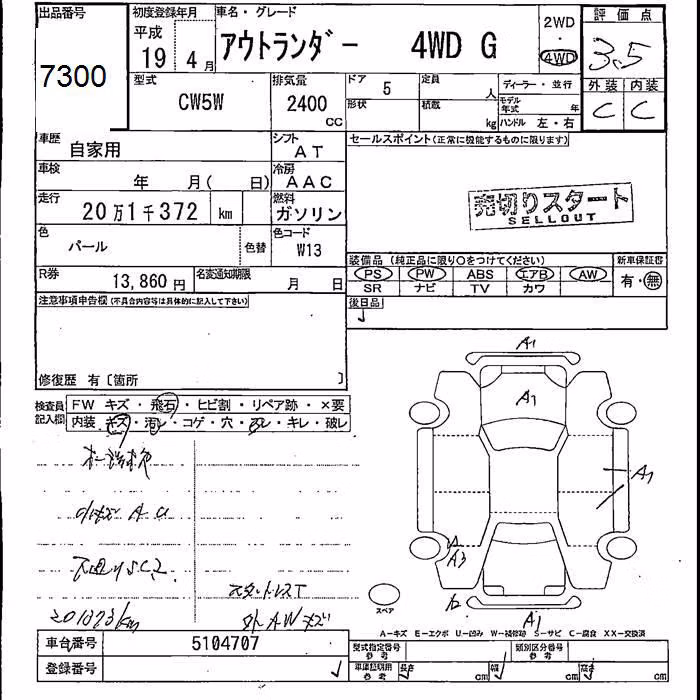 出品番号 初度登録年月 車名・グレード 2WD 評価点
7300 平成 アウトランダー 4WD G ・ 3.5
19 4月 4WD
型式 排気量 ドア 5 定員 人 ディーラー・並行 外装 内装
CW5W 2400 CC 形状 積載 kg モデル年式 年 C C
ハンドル 左・右
車歴 自家用 シフト AT セールスポイント(正常に機能するものに限ります)
車検 年 月( 日) 冷房 AAC
走行 20万1千372 km 燃料 ガソリン 売切りスタート
SELLOUT
色 パール 色替 色コード W13
装備品 (純正品に限り○をつけてください) 新車保証書
R券 13,860円 名変通知期限 月 日 PS PW ABS エアB AW 有・無
SR ナビ TV カワ
注意事項申告欄(不具合内容等は具体的に記入して下さい) 後日品
修復歴 有〔箇所 〕
検査員記入欄 FW キズ・飛石・ヒビ割・リペア跡・×要
内装 キズ・汚レ・コゲ・穴・スレ・キレ・破レ
A1
A1
A1
A3
A1
スタットレスT
201373km 外AWキズ
スペア
A-キズ E-エクボ U-凹み W-補修跡 S-サビ C-腐食 XX-交換済
車台番号 5104707 型式指定番号 参考 類別区分番号 参考
登録番号 車庫証明用 参考 長さ cm 幅 cm 高さ cm